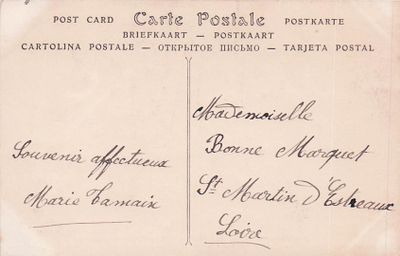 POST CARD Carte Postale POSTKARTE
BRIEFKAART — POSTKAART
CARTOLINA POSTALE — ОТКРЫТОЕ ПИСЬМО — TARJETA POSTAL
Souvenir affectueux
Marie Tamain
Mademoiselle
Bonne Marquet
St Martin d'Estreaux
Loire